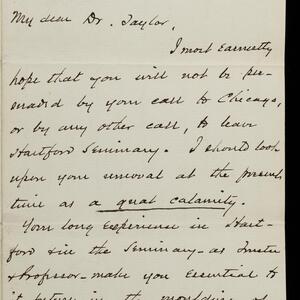 My dear Dr. Taylor,
I most earnestly
hope that you will not be per-
suaded by your call to Chicago,
or by any other call, to leave
Hartford Seminary. I should look
upon your removal at the present
time as a great calamity.
Your long experience in Hart-
ford & in the Seminary - as Trustee
& Professor - make you essential to
its future in the moulding of